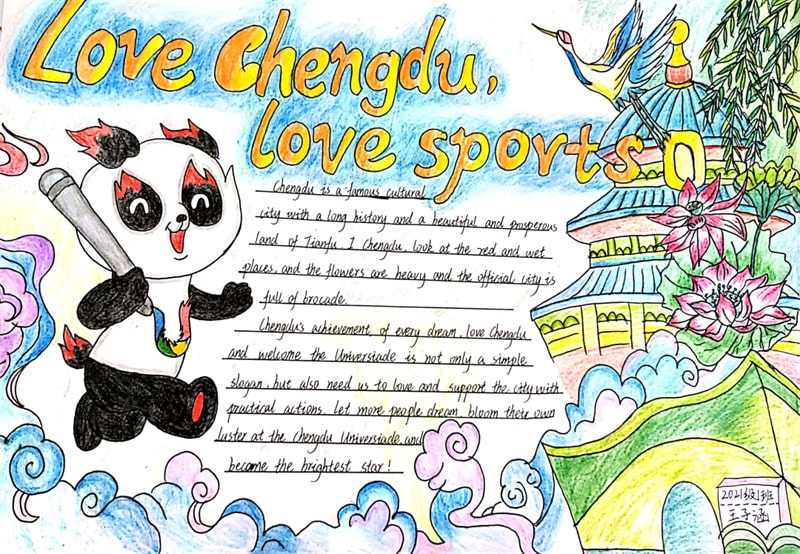 Love Chengdu,
love sports
Chengdu is a famous cultural
city with a long history and a beautiful and prosperous
land of Tianfu. I Chengdu. look at the red and wet
places, and the flowers are heavy and the official city is
full of brocade.
Chengdu's achievement, of every dream. love Chengdu
and welcome the Universiade is not only a simple
slogan, but also need us to love and support the city with
practical actions. Let more people dream bloom their own
luster at the Chengdu Universiade, and
become the brightest star!
2021级1班
王子涵